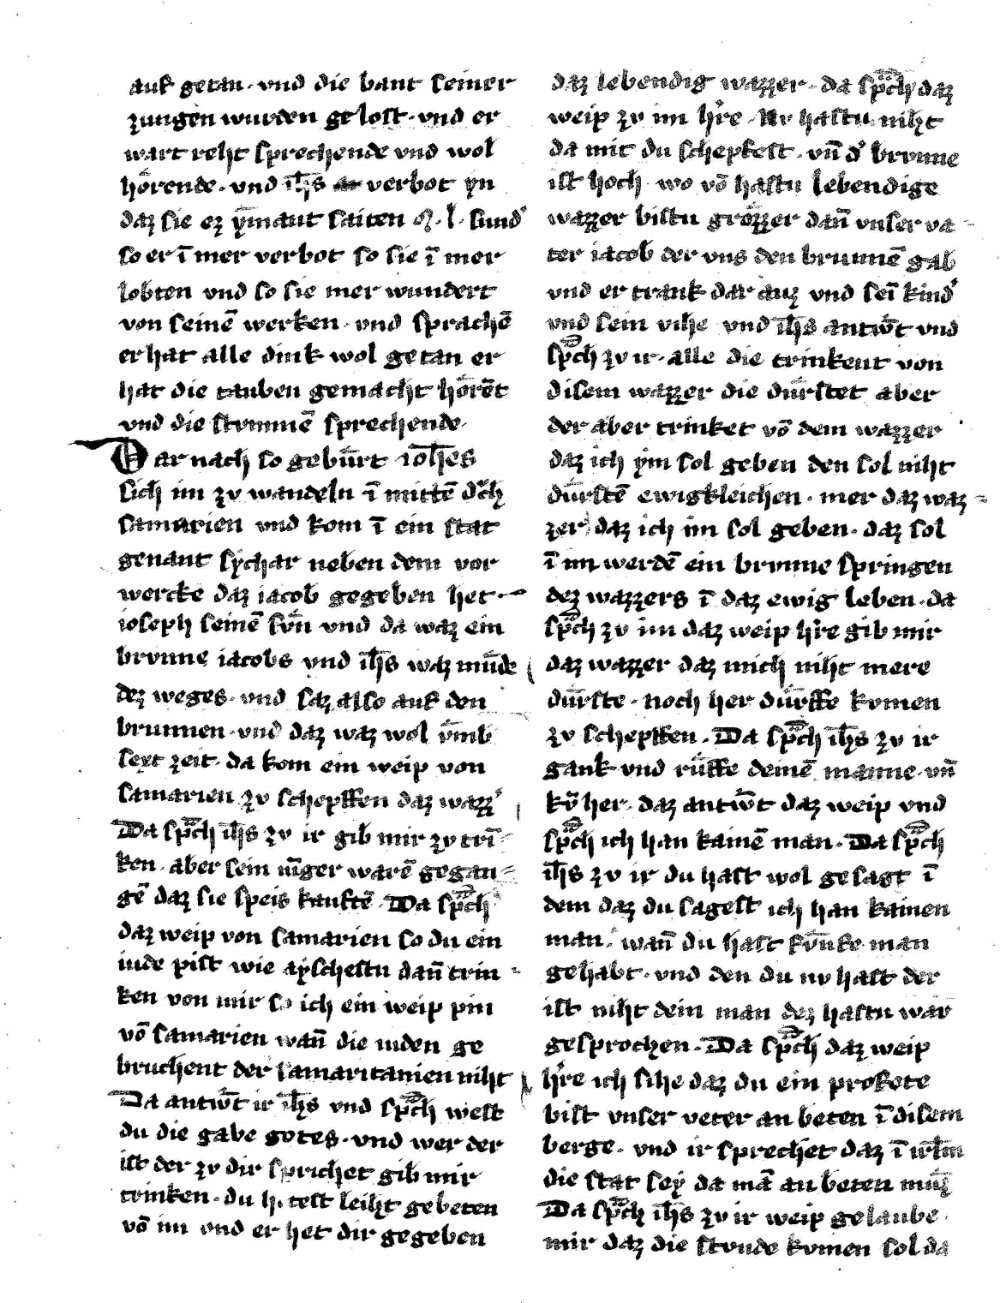 auf getan · vnd die bant seiner
zungen wurden gelost · vnd er
wart reht sprechende vnd wol
hoͤrende · vnd ih̄s verbot yn
daz sie ez ẏmant saiten
so er ī mer verbot so sie ī mer
lobten vnd so sie mer wundert
von seinē werken · vnd sprachē
er hat alle dink wol getan er
hat die tauben gemacht hoͤrēt
vnd die stvmmē sprechende ·
Dar nach so gebuͤrt ioh̄es
sich im zv wandeln ī mittē
samarien vnd kom ī ein stat
genant sychar neben dem vor
wercke daz iacob gegeben het ·
ioseph seinē svͤn vnd da waz ein
brvnne iacobs vnd ih̄s waz muͤde
dez weges · vnd saz also auf den
brunnen · vnd daz waz wol vmb
sext zeit · da kom ein weip von
samarien zv schepffen daz wazz᾽
Da sp̄ch ih̄s zv ir gib mir zv trī
ken · aber sein iūger warē gegan
gē daz sie speis kauftē · Da sp̄ch
daz weip von samarien so du ein
iude pist wie ayschestu dañ trin
ken von mir so ich ein weip pin
vō samarien wañ die iuden ge
bruchent der samaritanien niht
Da antw̄t ir ih̄s vnd sp̄ch west
du die gabe gotes · vnd wer der
ist der zv dir sprichet gib mir
trinken · du hetest leiht gebeten
vō im vnd er het dir gegeben
daz lebendig wazzer · da sp̄ch daz
weip zv im h̄re · Nv hastu niht
da mit du schepfest · vñ d᾽ brvnne
ist hoch wo vō hastu lebendige
wazzer bistu groͤzzer dañ vnser va
ter iacob der vns den brunnē gab
vnd er trank dar auz vnd sei kind᾽
vnd sein vihe vnd ih̄s antw̄t vnd
sp̄ch zv ir · alle die trinkent von
disem wazzer die duͤrstet aber
der aber trinket vō dem wazzer
daz ich ẏm sol geben den sol niht
duͤrstē ewigkleichen · mer daz waz
zer daz ich im sol geben · daz sol
ī im werdē ein brvnne springen
dez wazzers ī daz ewig leben · da
sp̄ch zv im daz weip h̄re gib mir
daz wazzer daz mich niht mere
duͤrste · noch her duͤrffe kvmen
zv schepffen · Da sp̄ch ih̄s zv ir
gank vnd ruͤffe deinē manne · vñ
kv̄ her · daz antw̄t daz weip vnd
sp̄ch ich han kainē man · Da sp̄ch
ih̄s zv ir du hast wol gesagt ī
dem daz du sagest ich han kainen
man · wañ du hast fv̄nfe man
gehabt · vnd den du nv hast der
ist niht dein man dez hastu war
gesprochen · Da sp̄ch daz weip
h̄re ich sihe daz du ein profete
bist vnser veter an beten ī disem
berge · vnd ir sprechet daz ī irl̄m
die stat sey da mā an beten muͤz
Da sp̄ch ih̄s zv ir weip gelaube
mir daz die stvnde kvmen sol da